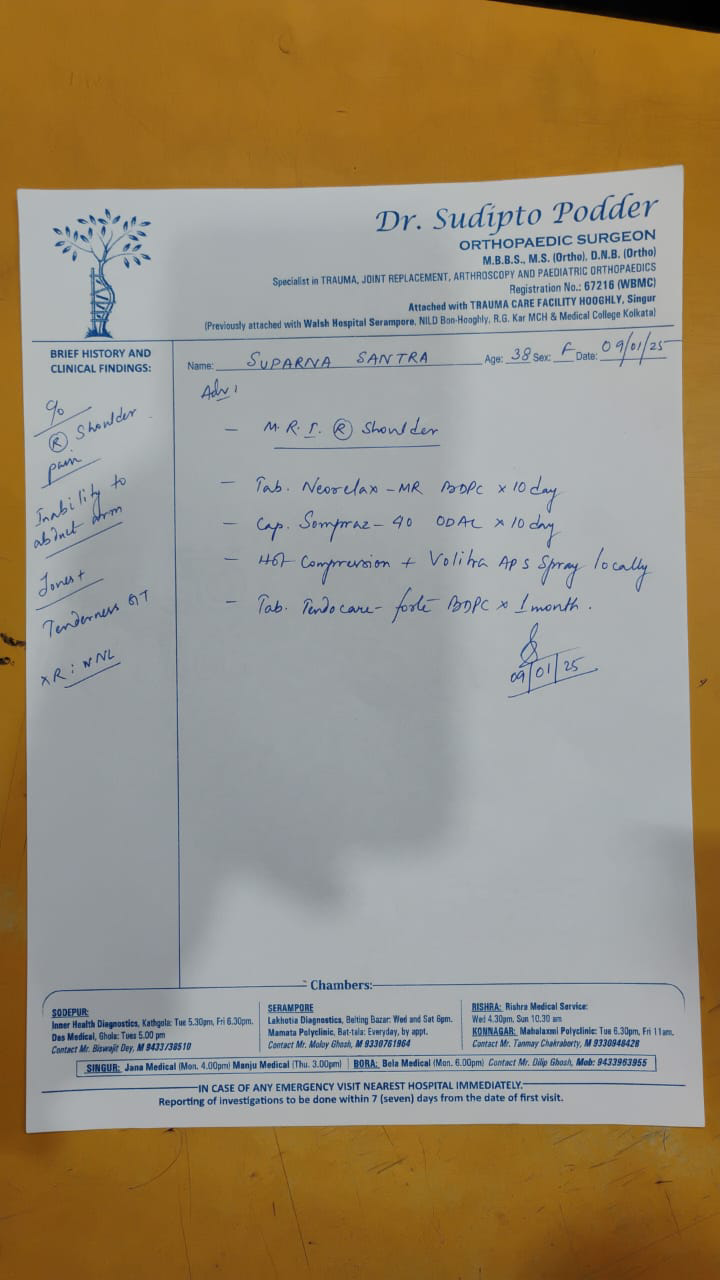 Dr. Sudipto Podder
ORTHOPAEDIC SURGEON
M.B.B.S., M.S. (Ortho), D.N.B. (Ortho)
Specialist in TRAUMA, JOINT REPLACEMENT, ARTHROSCOPY AND PAEDIATRIC ORTHOPAEDICS
Registration No.: 67216 (WBMC)
Attached with TRAUMA CARE FACILITY HOOGHLY, Singur
(Previously attached with Walsh Hospital Serampore, NILD Bon-Hooghly, R.G. Kar MCH & Medical College Kolkata)
BRIEF HISTORY AND
CLINICAL FINDINGS:
Name: SUPARNA SANTRA Age: 38 Sex: F Date: 09/01/25
c/o
Ⓡ Shoulder
pain
Inability to
abduct arm
Jones+
Tenderness GT
XR: NNL
Adv:
- M.R.I. Ⓡ Shoulder
- Tab. Neorelax-MR BDPC x 10 day
- Cap. Sompraz-40 ODAC x 10 day
- Hot Compression + Volitra APS Spray locally
- Tab. Tendocare-forte BDPC x 1 month.
09/01/25
Chambers:-
SODEPUR:
Inner Health Diagnostics, Kathgola: Tue 5.30pm, Fri 6.30pm.
Das Medical, Ghola: Tues 5.00 pm
Contact Mr. Biswajit Dey, M 9433738510
SERAMPORE
Lakhotia Diagnostics, Belting Bazar: Wed and Sat 6pm.
Mamata Polyclinic, Bat-tala: Everyday, by appt.
Contact Mr. Moloy Ghosh, M 9330761964
RISHRA: Rishra Medical Service:
Wed 4.30pm. Sun 10.30 am
KONNAGAR: Mahalaxmi Polyclinic: Tue 6.30pm, Fri 11am.
Contact Mr. Tanmay Chakraborty, M 9330948428
SINGUR: Jana Medical (Mon. 4.00pm) Manju Medical (Thu. 3.00pm) | BORA: Bela Medical (Mon. 6.00pm) Contact Mr. Dilip Ghosh, Mob: 9433963955
IN CASE OF ANY EMERGENCY VISIT NEAREST HOSPITAL IMMEDIATELY.
Reporting of investigations to be done within 7 (seven) days from the date of first visit.